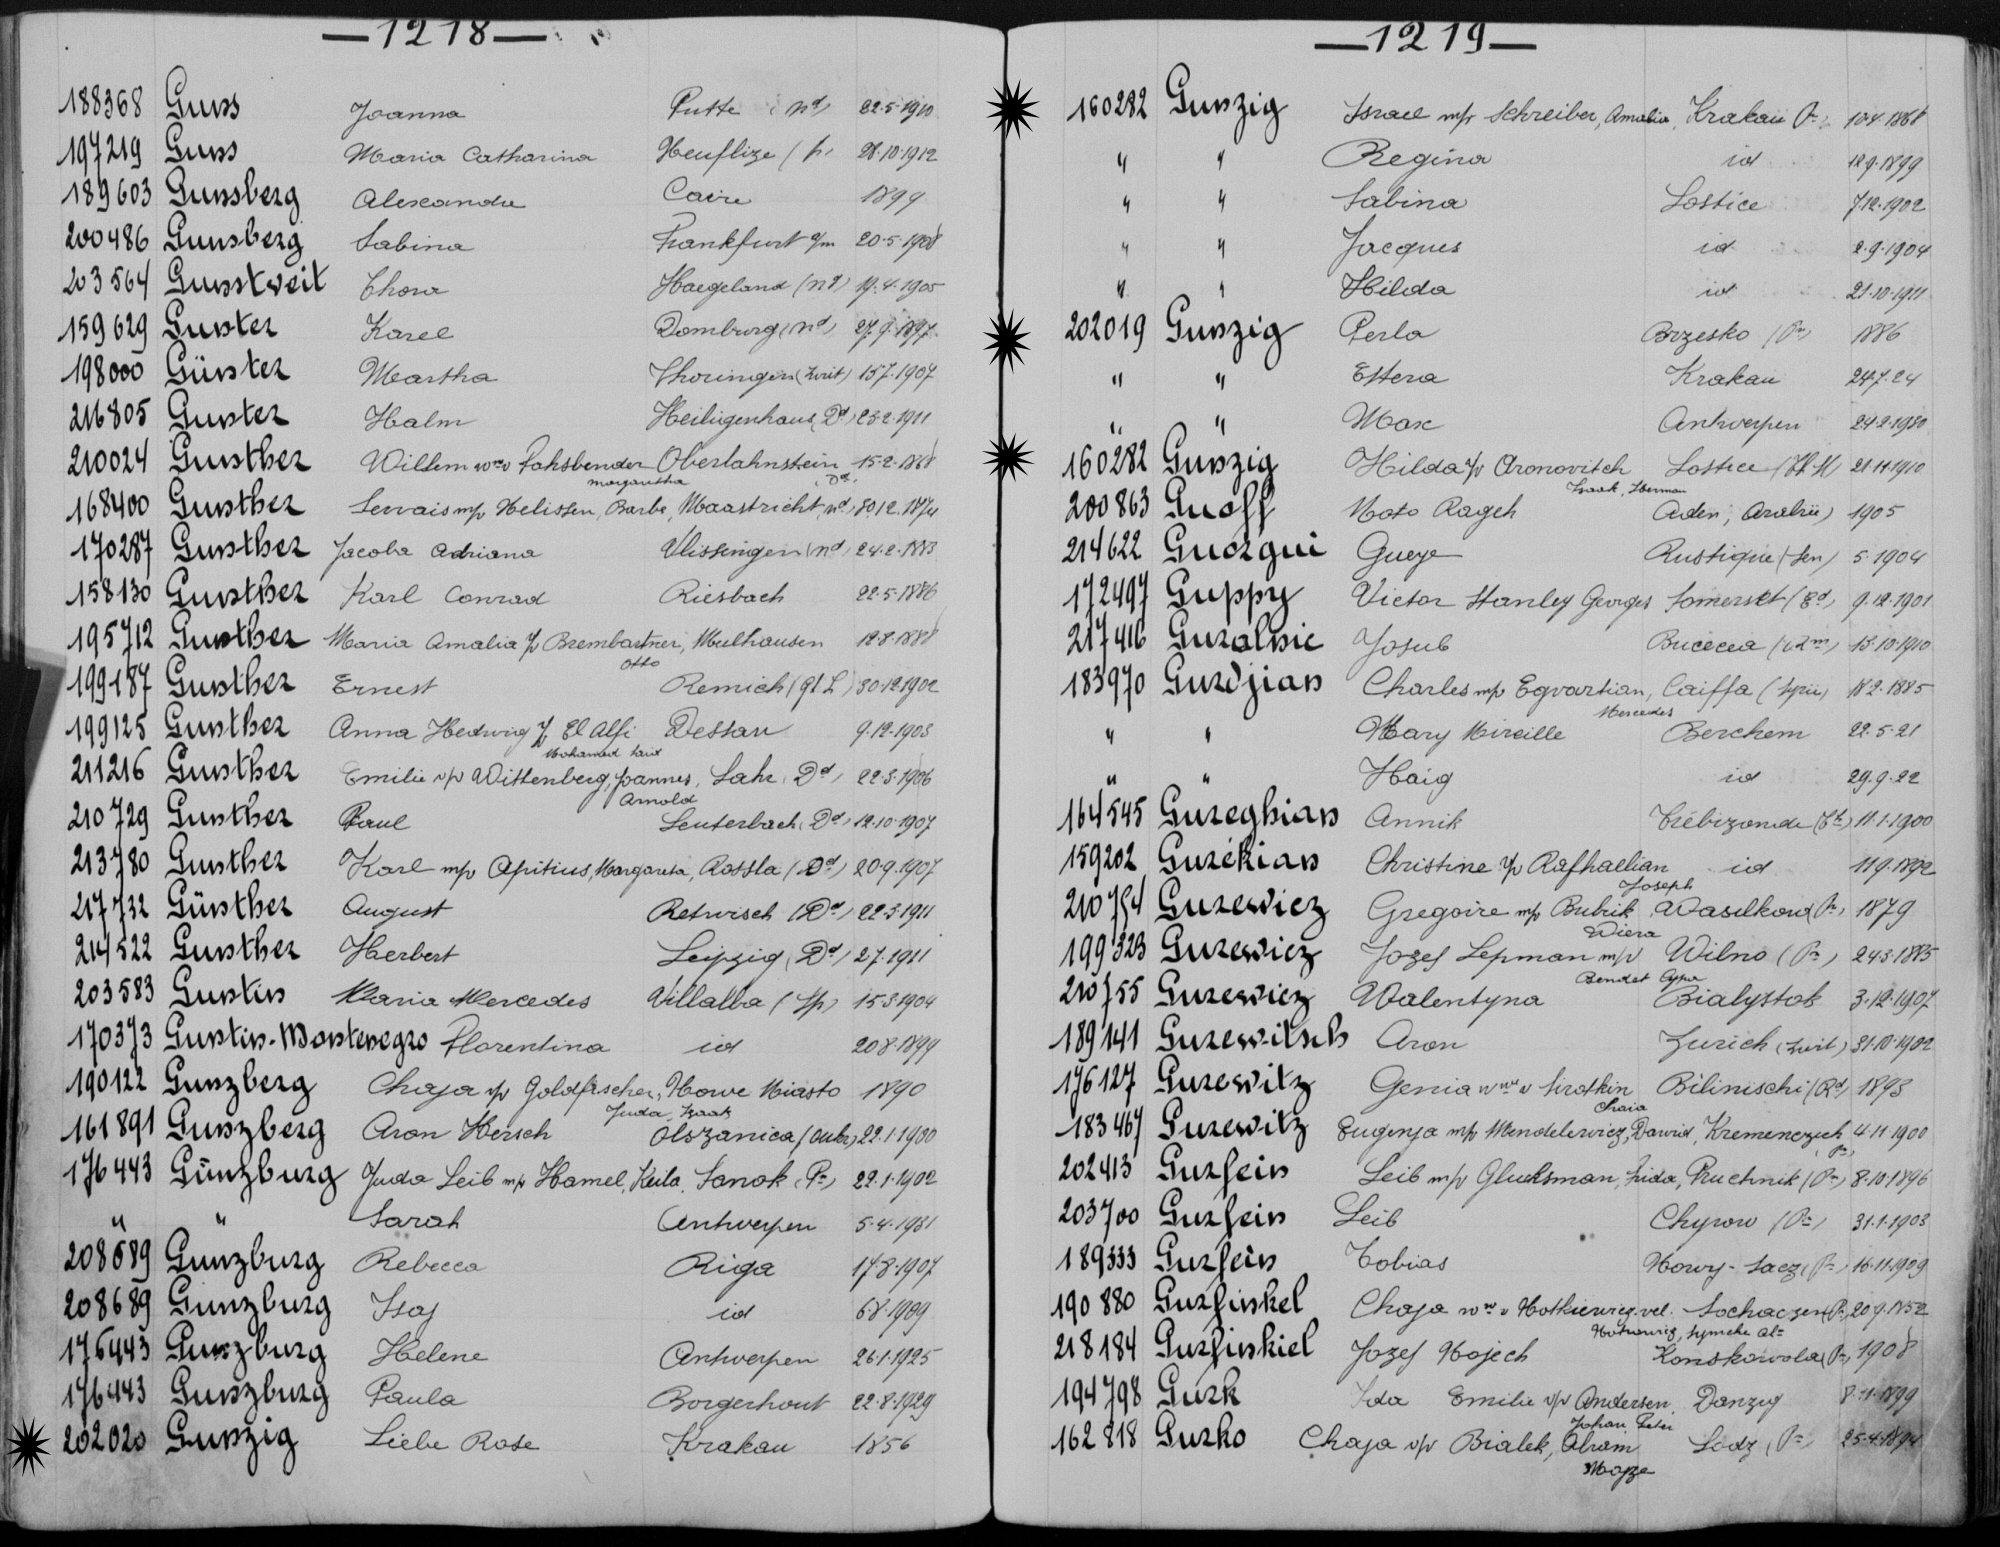 —1218—
188368 Guns Joanna Putte (nd) 22-5-1910
197219 Guns Maria Catharina Heuflize (fr) 28-10-1912
189603 Gunsberg Alexandre Caire 1899
200486 Gunsberg Sabina Frankfurt a/m 20-5-1908
203564 Gunstveit Thora Haegeland (nd) 19-4-1905
159629 Gunter Karel Domburg (nd) 27-9-1897
198000 Günter Martha Thoringen (Zwit) 15-7-1907
216805 Gunter Halm Heiligenhaus (Dd) 23-2-1911
210024 Gunther Willem wwv Fahsbender Oberlahnstein 15-2-1868
Margaretha (Dd)
168400 Gunther Servais m/v Helissen, Barbe, Maastricht (nd) 30-12-1874
170287 Gunther Jacoba Adriana Vlissingen (nd) 24-2-1883
158130 Gunther Karl Conrad Riesbach 22-5-1886
195712 Gunther Maria Amalia v/v Brembartner, Mulhausen 12-8-1888
Otto
199187 Gunther Ernest Remich (gt L) 30-12-1902
199125 Gunther Anna Hedwig v/v El Alfi Dessau 9-12-1903
Mohamed Said
211216 Gunther Emilie v/v Wittenberg, Joannes, Lahr (Dd) 22-3-1906
Arnold
210729 Gunther Paul Leuterbach (Dd) 12-10-1907
213780 Gunther Karl m/v Apitius, Margareta, Rossla (Dd) 20-9-1907
217732 Günther August Retwisch (Dd) 22-3-1911
214522 Gunther Herbert Leipzig (Dd) 2-7-1911
203583 Guntin Maria Mercedes Villalba (Sp) 15-3-1904
170373 Guntin-Montenegro Florentina id 20-8-1899
190122 Gunzberg Chaja v/v Goldfischer, Nowe Miasto 1890
Juda Izaak
161891 Gunzberg Aron Hersch Olszanica (Outr) 22-1-1900
176443 Günzburg Juda Leib m/v Hamel, Keila, Sanok (Pn) 22-1-1902
" " Sarah Antwerpen 5-4-1931
208689 Gunzburg Rebecca Riga 17-8-1907
208689 Gunzburg Isaj id 6-8-1909
176443 Gunzburg Helene Antwerpen 26-1-1925
176443 Gunzburg Paula Borgerhout 22-8-1929
202020 Gunzig Liebe Rose Krakau 1856
—1219—
160282 Gunzig Israel m/v Schreiber, Amalia, Krakau Pn 10-4-1868
" " Regina id 12-9-1899
" " Sabina Lostice 7-12-1902
" " Jacques id 2-9-1904
" " Hilda id 21-10-1911
202019 Gunzig Perla Brzesko (Pn) 1886
" " Estera Krakau 24-7-24
" " Max Antwerpen 24-2-1930
160282 Gunzig Hilda v/v Aronovitch Lostice (Th Sl) 21-11-1910
Izaak, Herman
200863 Guoff Noto Rageh Aden, Arabie) 1905
214622 Guorgui Gueye Rustique (Sen) 5-1904
172497 Guppy Victor Stanley Georges Somerset (Ed) 9-12-1901
217416 Guralnic Josub Bucecea (Rm) 15-10-1910
183970 Gurdjian Charles m/v Egvartian, Caiffa (Syrie) 18-2-1885
Mercedes
" " Mary Mireille Berchem 22-5-21
" " Haig id 29-9-22
164545 Gureghian Annik Trébizonde (Tk) 11-1-1900
159202 Gurékian Christine v/v Rafhaelian id 11-9-1892
Joseph
210754 Gurewicz Gregoire m/v Bubrik Wasilkow (Pn) 1879
Wiera
199323 Gurewicz Jozef Lepman m/v Wilno (Pn) 24-3-1885
Bendet
210755 Gurewicz Walentyna Bialystok 3-12-1907
189141 Gurewitsch Aron Zurich (Zwit) 31-10-1902
176127 Gurewitz Genia wwe v Sirotkin Bilinischi (Rd) 1893
Chaia
183467 Gurewitz Eugenja m/v Mendelewicz, Dawid, Kremenczuch 4-11-1900
(Pn)
202413 Gurfein Leib m/v Glucksman, Luda, Pruchnik (Pn) 8-10-1896
203700 Gurfein Leib Chyrow (Pn) 31-1-1903
189333 Gurfein Tobias Nowy-Sacz (Pn) 16-11-1909
190880 Gurfinkel Chaja wwe v Notkiewicz vel. Sochaczen (Pn) 20-9-1852
218184 Gurfinkiel Jozef Nojech Konskowola (Pn) 1908
194798 Gurk Ida Emilie v/v Andersen Danzig 8-11-1899
Johan Peter
162818 Gurko Chaja v/v Bialek, Abram Lodz (Pn) 25-4-1894
Mojze